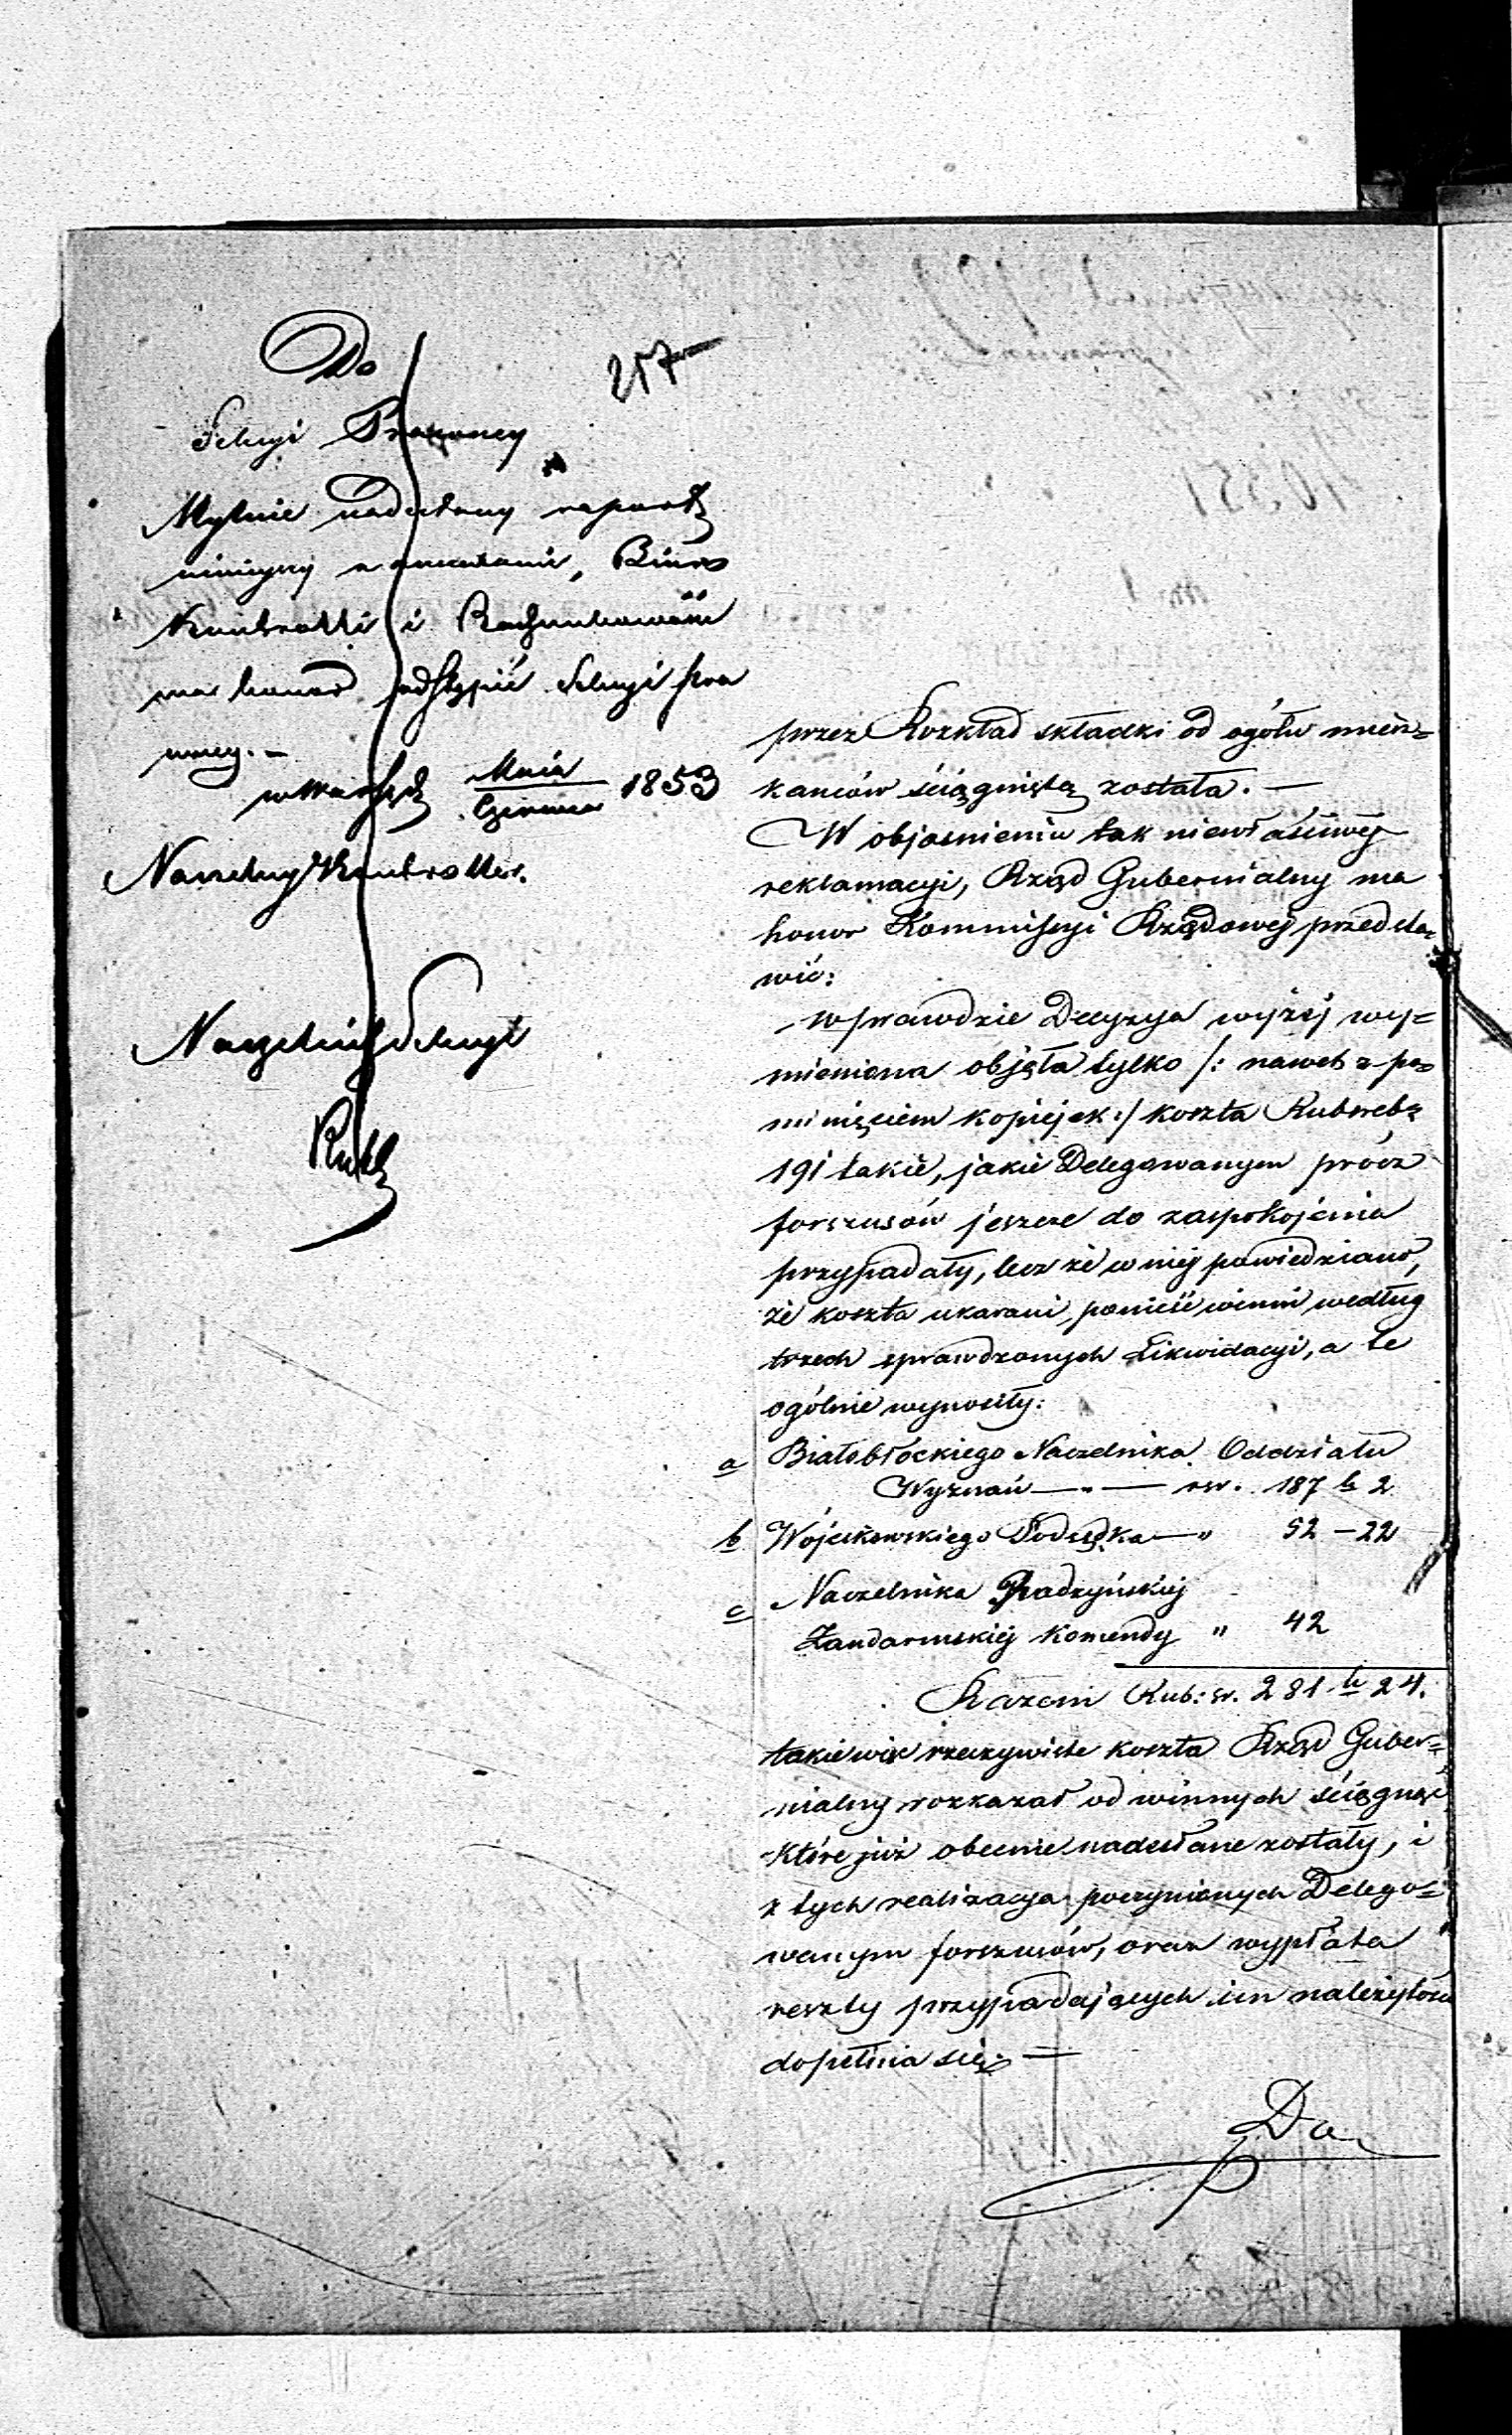 217
Do
Sekcyi Prawney
Mylnie nadesłany raport
niniejszy, Biuro
Kontrolli i Rachunkowości
ma honor odstąpić Sekcyi Pra
wney. —
w Maja/Czerwca 1853
Naczelny Kontroller.
Naczelnik Sekcyi
przez Rozkład składki od ogółu miesz=
kańców ściągniętą została. —
W objasnieniu tak niewłaściwej
reklamacyi, Rząd Gubernialny ma
honor Kommissyi Rządowej przedsta=
wić:
wprawdzie Decyzya wyżej wy=
mieniona objęła tylko /: nawet z po=
minięciem kopiejek :/ koszta Rubsreb:
191 takie, jakie Delegowanym prócz
forszusów jeszcze do zaspokojenia
przypadały, lecz że w niej powiedziano,
że koszta ukarani, ponieść winni według
trzech sprawdzonych Likwidacyi, a te
ogólnie wynosiły:
a Białobłockiego Naczelnika Oddziału
Wyznań — " — rsr. 187 k 2
b Wójcikowskiego Podsędka — " 52 — 22
c Naczelnika Radzyńskiej
Żandarmskiej Komendy " 42
Razem Rub: sr. 281 k 24.
takie więc rzeczywiste koszta Rząd Guber=
nialny rozkazał od winnych ściągnąć
które już obecnie nadesłane zostały, i
z tych realizacya poczynionych Delego=
wanym forszusów, oraz wypłata
reszty przypadających im należytości
dopełnia się. —
Do